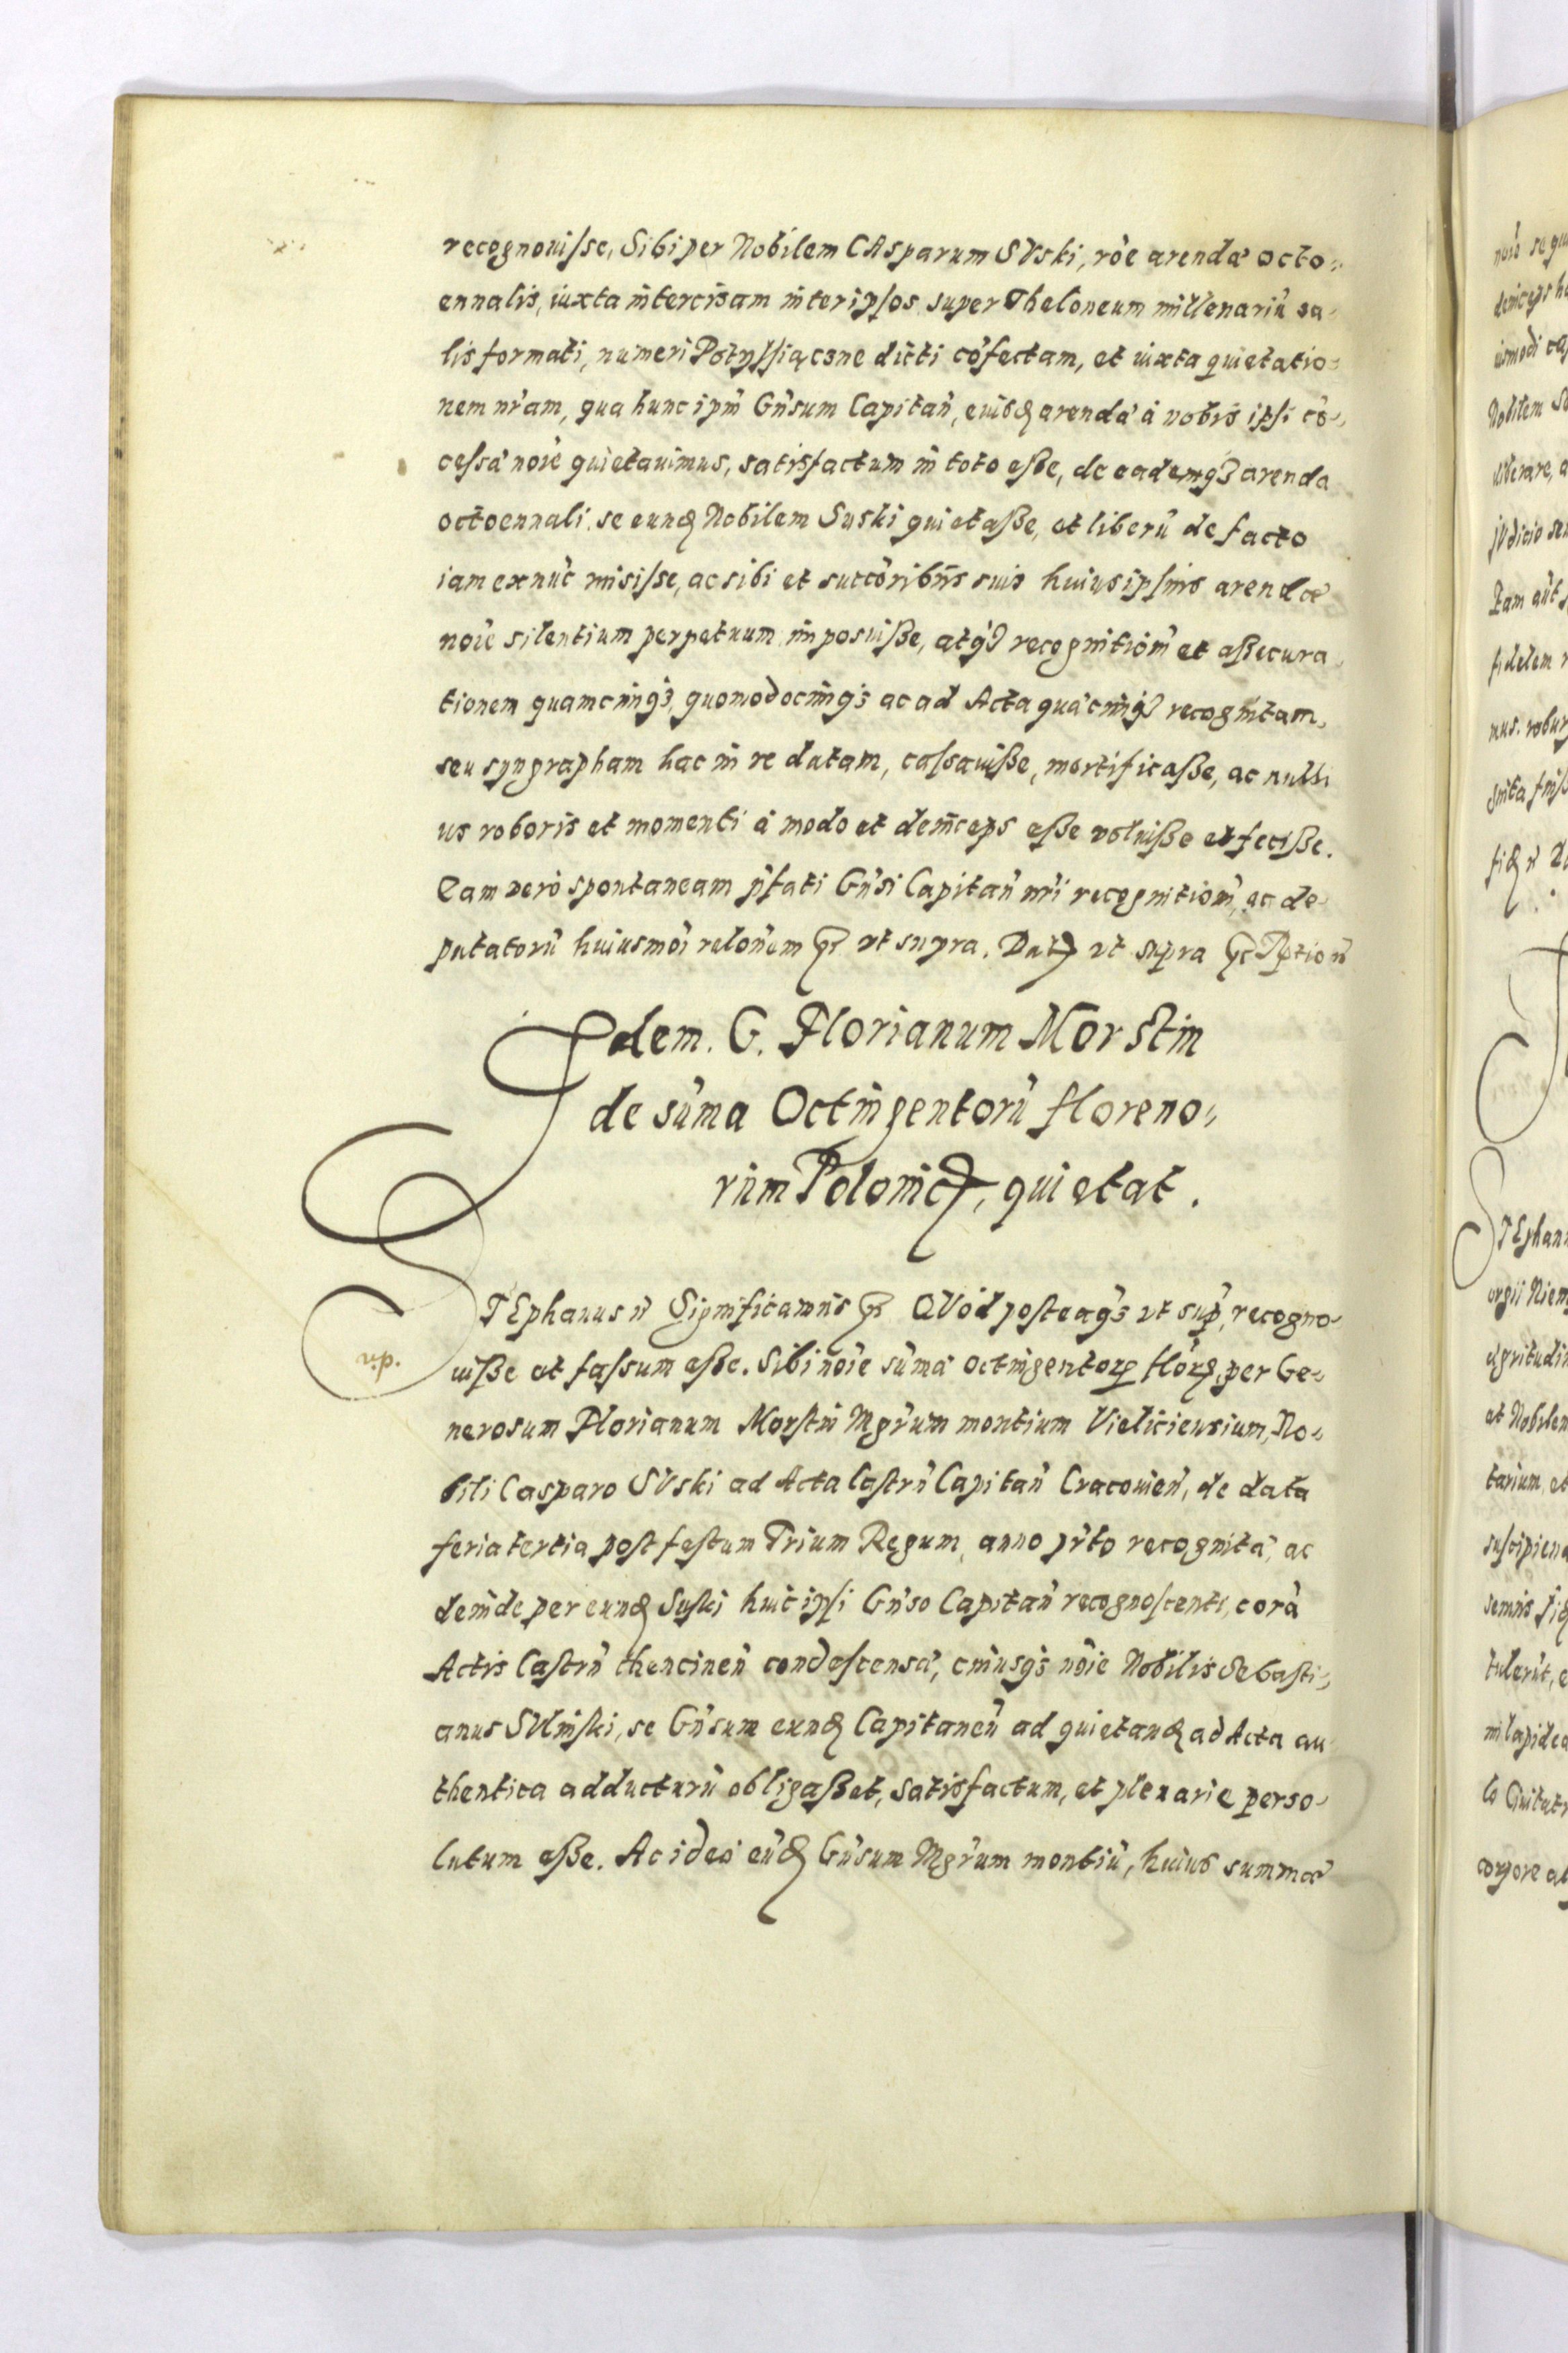 recognouisse, Sibi per Nobilem CAsparum SVski, rõe arendæ octo=
ennalis, iuxta intercisam inter ipsos super Theloneum millenariũ sa=
lis formati, numeri dicti cõfectam, et iuxta quietatio=
nem nr̃am, qua hunc ipm̃ Gñsum Capitañ, arendæ à nobis ipsi cõ=
cessæ noĩe quietauimus, satisfactum in toto eße, de eademq3 arenda
octoennali se eund Nobilem Suski quietaße, et liberũ de facto
iam ex nũc misisse, ac sibi et succõribus suis huius ipsius arendæ
noĩe silentium perpetuum imposuiße, atq3 recognitioñ et aßecura=
tionem quamcunq3, quomodocunq3 ac ad Acta quæcunq3 recognitam,
seu syngrapham hac in re datam, cassauiße, mortificaße, ac nulli
us roboris et momenti à modo et deinceps eße voluiße et feciße.
Eam verò spontaneam p̃fati Gñsi Capitañ nr̃i recognitioñ, ac de=
putatorũ huiusmõi relõnem ut supra. Dat ut supra
Idem. G. Florianum Morstin
de sũma Octingentorũ floreno=
rum Polonic, quietat.
STEphanus Significamus QVòd posteaq3 ut sup, recogno=
uiße et fassum eße. Sibi noĩe sũmæ octingentor flor, per Ge=
rip.
nerosum Florianum Morstin Mgr̃um montium Vieliciensium, No=
bili Casparo SVski ad Acta Castrñ Capitañ Cracovieñ, de data
feria tertia post festum Trium Regum, anno pr̃to recognitæ, ac
deinde per eund Suski huic ipsi Gñso Capitañ recognoscenti, corã
Actis Castrñ chencineñ condescensæ, cuiusq3 nõie Nobilis Sebasti=
anus SVlinski, se Gñsum eund Capitaneũ ad quietand ad Acta au
thentica adducturũ obligaßet, satisfactum, et plenarie perso=
lutum eße. Ac ideo eũd Gñsum Mgr̃um montiũ, huius summæ